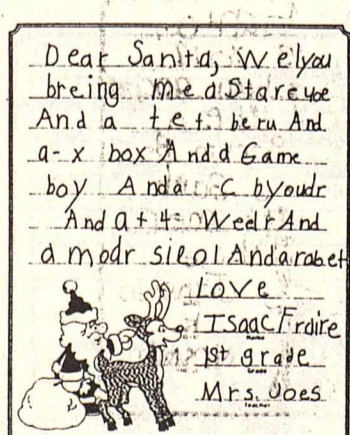 Dear Santa, We'l you
breing me a Stareyoe
And a tet. beru And
a-x box And a Game
boy And a C byoudr
And a + 4= Weelr And
a modr sicol And a rabet
love
Isaac Fraire
Name
1st grade
Grade
Mrs. Joes
Teacher